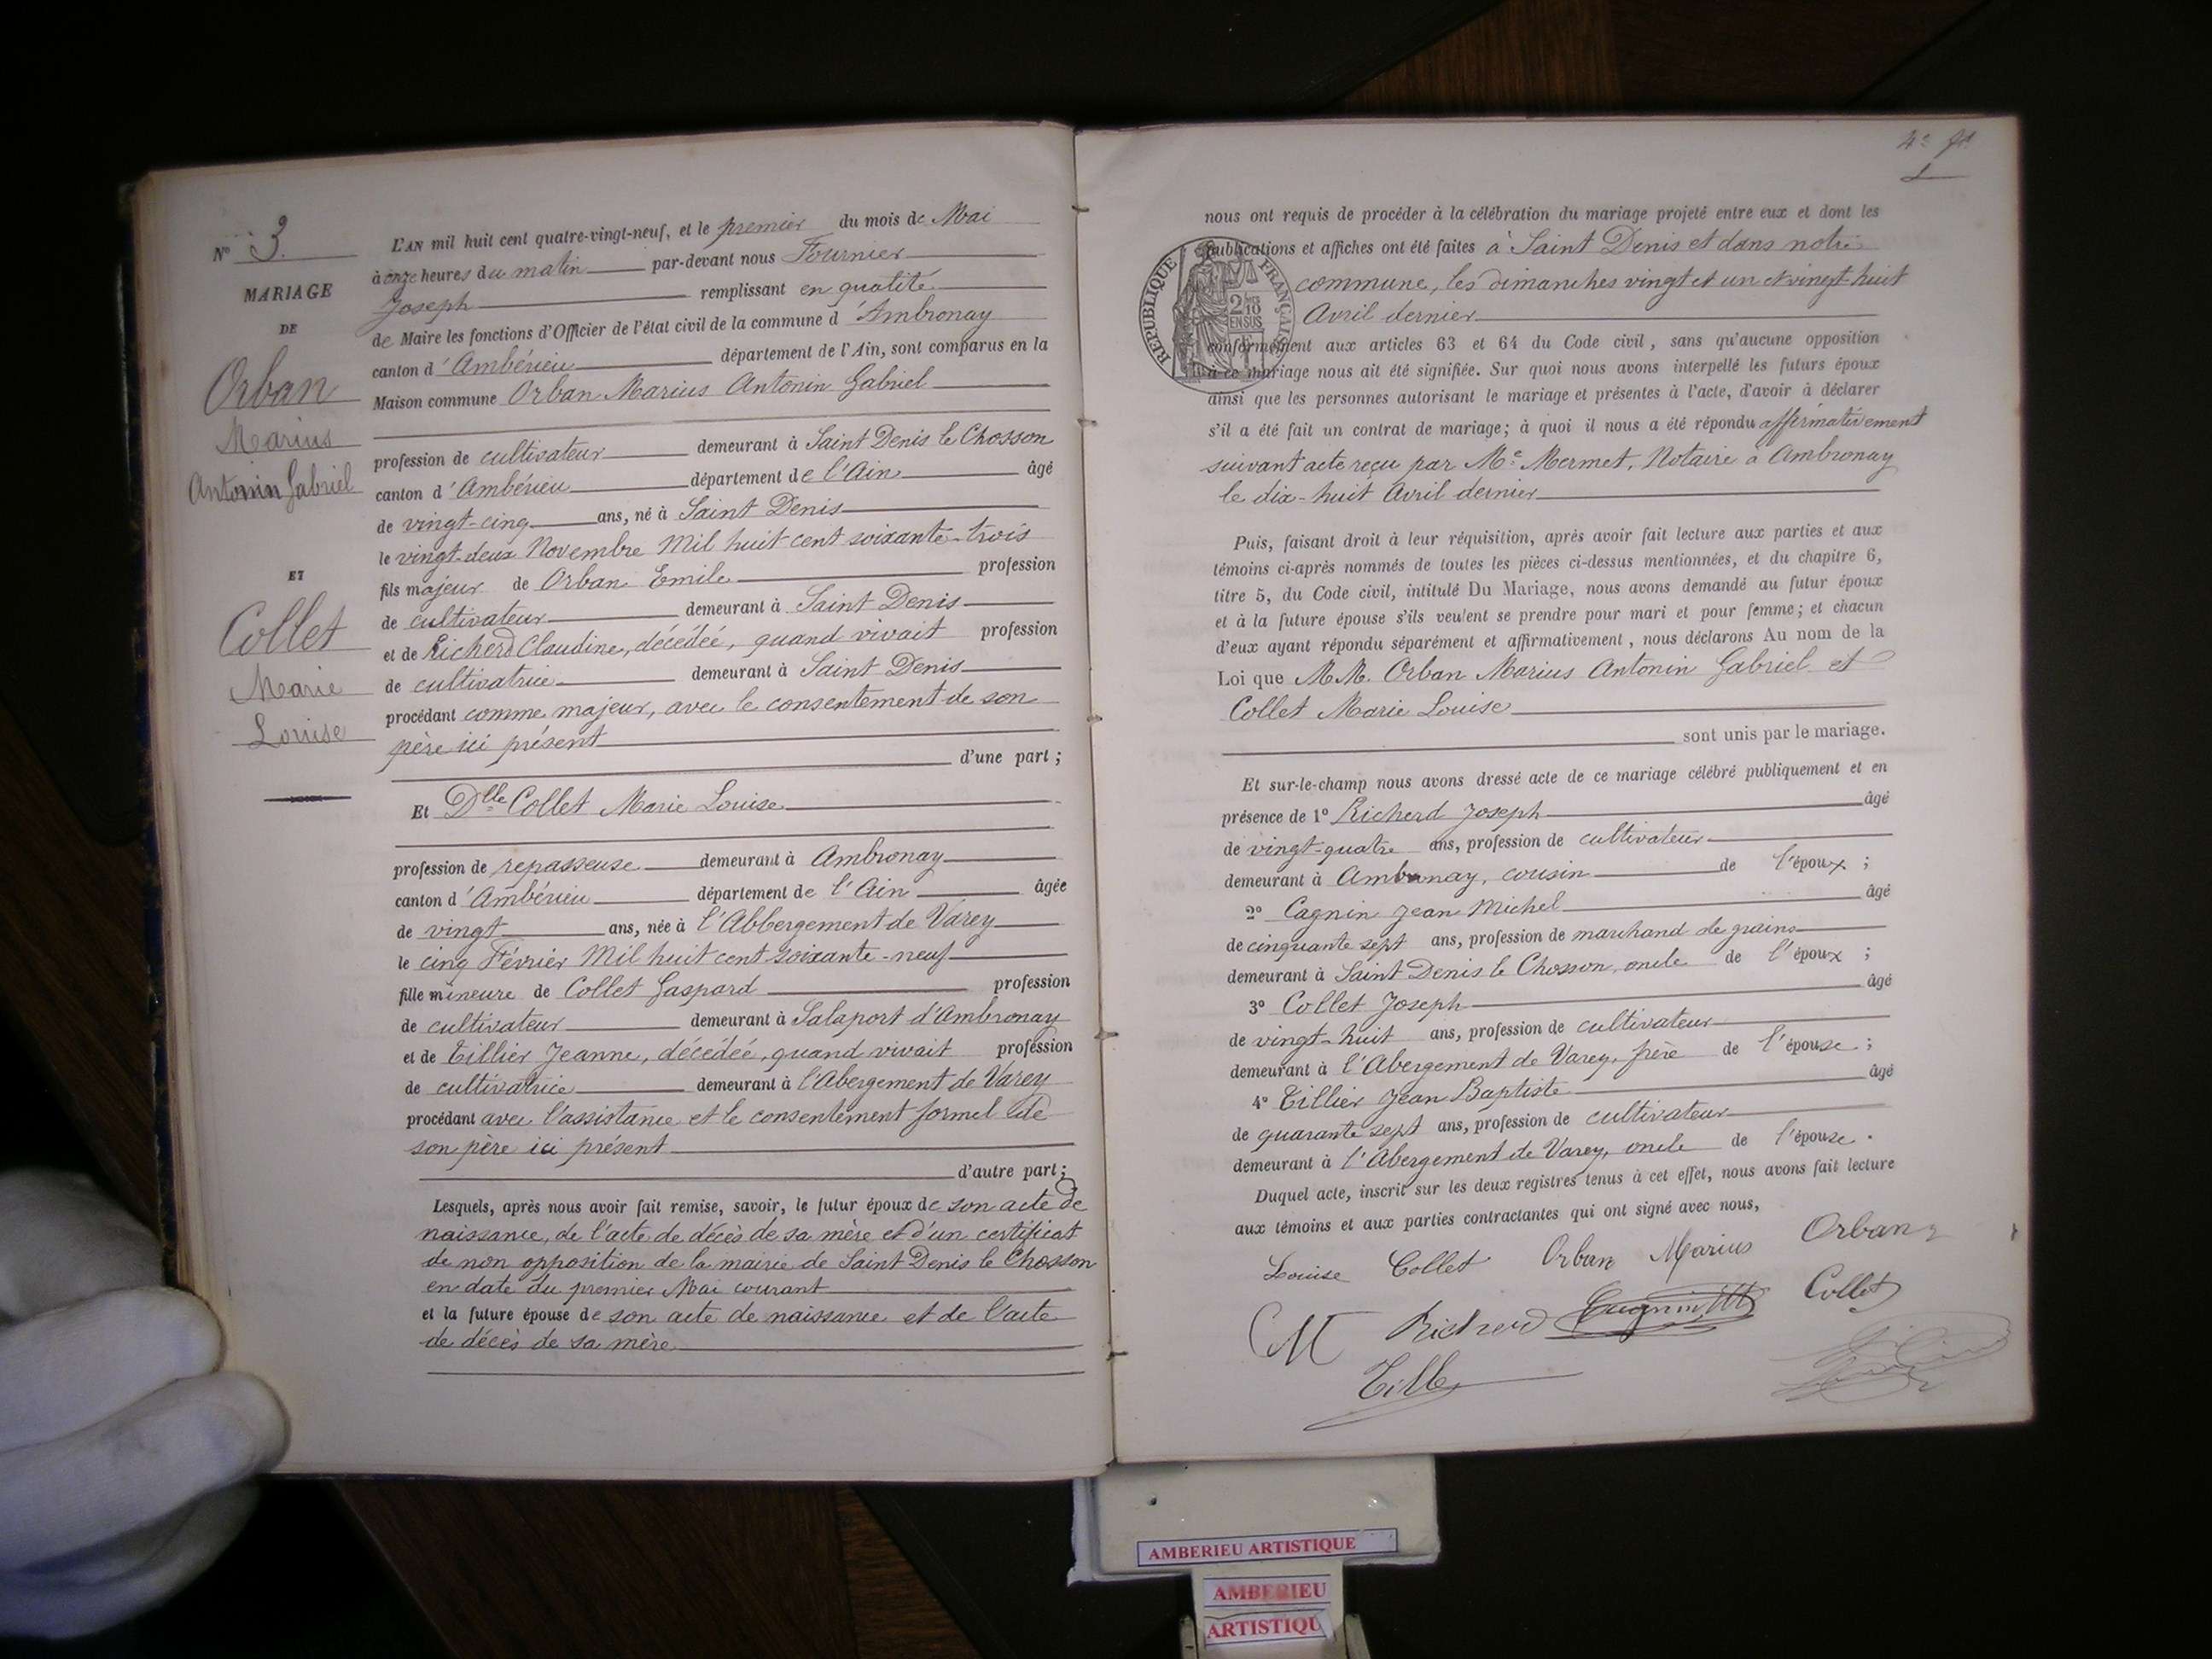 N° 3.
MARIAGE
DE
Orban
Marius
Antonin Gabriel
ET
Collet
Marie
Louise
L'AN mil huit cent quatre-vingt-neuf, et le premier du mois de Mai
à onze heures du matin par-devant nous Fournier
Joseph remplissant en qualité
de Maire les fonctions d'Officier de l'état civil de la commune d'Ambronay
canton d'Ambérieu département de l'Ain, sont comparus en la
Maison commune Orban Marius Antonin Gabriel
profession de cultivateur demeurant à Saint Denis le Chosson
canton d'Ambérieu département de l'Ain âgé
de vingt-cinq ans, né à Saint Denis
le vingt-deux Novembre Mil huit cent soixante-trois
fils majeur de Orban Emile profession
de cultivateur demeurant à Saint Denis
et de Richerd Claudine, décédeé, quand vivait profession
de cultivatrice demeurant à Saint Denis
procédant comme majeur, avec le consentement de son
père ici présent
d'une part ;
Et Dlle Collet Marie Louise
profession de repasseuse demeurant à Ambronay
canton d'Ambérieu département de l'Ain âgée
de vingt ans, née à l'Abbergement de Varey
le cinq Février Mil huit cent soixante-neuf
fille mineure de Collet Gaspard profession
de cultivateur demeurant à Salaport d'Ambronay
et de Tillier Jeanne, décédeé, quand vivait profession
de cultivatrice demeurant à l'Abergement de Varey
procédant avec l'assistance et le consentement formel de
son père ici présent
d'autre part ;
Lesquels, après nous avoir fait remise, savoir, le futur époux de son acte de
naissance, de l'acte de décès de sa mère et d'un certificat
de non opposition de la mairie de Saint Denis le Chosson
en date du premier Mai courant
et la future épouse de son acte de naissance et de l'acte
de décès de sa mère
nous ont requis de procéder à la célébration du mariage projeté entre eux et dont les
publications et affiches ont été faites à Saint Denis et dans notre
commune, les dimanches vingt et un et vingt-huit
Avril dernier
RÉPUBLIQUE FRANÇAISE
2/10
EN SUS
conformément aux articles 63 et 64 du Code civil, sans qu'aucune opposition
à ce mariage nous ait été signifiée. Sur quoi nous avons interpellé les futurs époux
ainsi que les personnes autorisant le mariage et présentes à l'acte, d'avoir à déclarer
s'il a été fait un contrat de mariage; à quoi il nous a été répondu affirmativement
suivant acte reçu par Me Mermet, Notaire à Ambronay
le dix-huit Avril dernier
Puis, faisant droit à leur réquisition, après avoir fait lecture aux parties et aux
témoins ci-après nommés de toutes les pièces ci-dessus mentionnées, et du chapitre 6,
titre 5, du Code civil, intitulé Du Mariage, nous avons demandé au futur époux
et à la future épouse s'ils veulent se prendre pour mari et pour femme; et chacun
d'eux ayant répondu séparément et affirmativement, nous déclarons Au nom de la
Loi que MM. Orban Marius Antonin Gabriel et
Collet Marie Louise
sont unis par le mariage.
Et sur-le-champ nous avons dressé acte de ce mariage célébré publiquement et en
présence de 1° Richerd Joseph âgé
de vingt-quatre ans, profession de cultivateur
demeurant à Ambronay, cousin de l'époux ;
2° Cagnin Jean Michel âgé
de cinquante sept ans, profession de marchand de grains
demeurant à Saint Denis le Chosson, oncle de l'époux ;
3° Collet Joseph âgé
de vingt-huit ans, profession de cultivateur
demeurant à l'Abergement de Varey, frère de l'épouse ;
4° Tillier Jean Baptiste âgé
de quarante sept ans, profession de cultivateur
demeurant à l'Abergement de Varey, oncle de l'épouse.
Duquel acte, inscrit sur les deux registres tenus à cet effet, nous avons fait lecture
aux témoins et aux parties contractantes qui ont signé avec nous,
Louise Collet Orban Marius Orban
Richerd Cagnin Collet
AMBERIEU ARTISTIQUE
AMBERIEU
ARTISTIQU